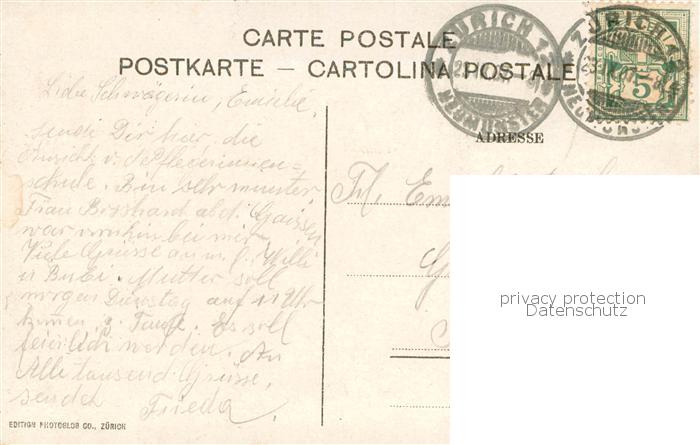 CARTE POSTALE
POSTKARTE — CARTOLINA POSTALE
ZÜRICH 12
NEUMÜNSTER
ZÜRICH 12
5
ADRESSE
Liebe Schwägerin, Emilie,
sende Dir hier die
Ansicht v. d. Pflegerinnen=
schule. Bin sehr munter,
Frau Bosshard
war vorhin bei mir.
Viele Grüsse an m. l. Willi
u Bubi. Mutter soll
morgen Dienstag auf 11 Uhr
kommen, z. Taufe. Es soll
feierlich werden. An
Alle tausend Grüsse,
sendet Frieda.
EDITION PHOTOGLOB CO., ZÜRICH
privacy protection
Datenschutz